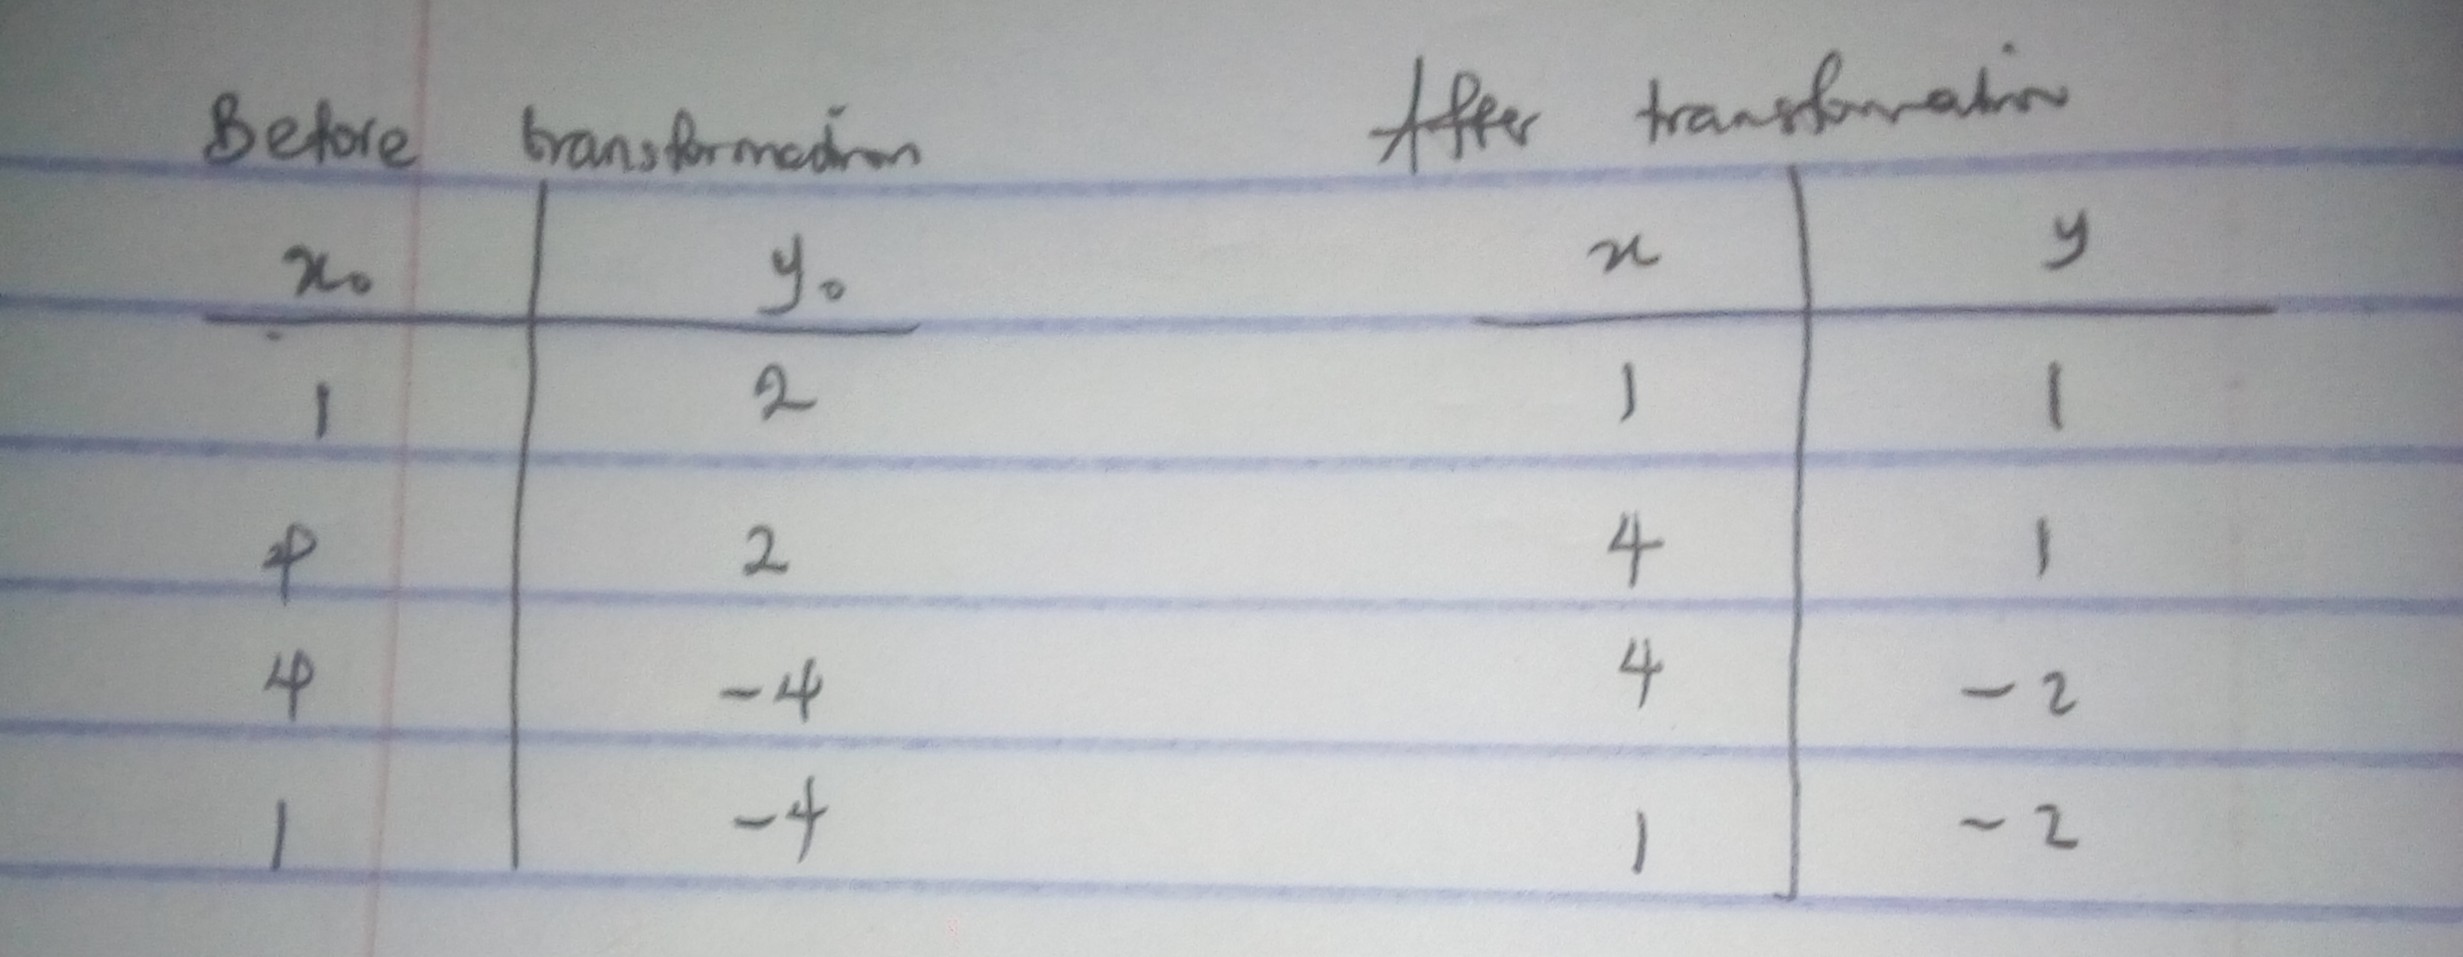 Before transformation After transformation
x₀ y₀ x y
1 2 1 1
4 2 4 1
4 -4 4 -2
1 -4 1 -2